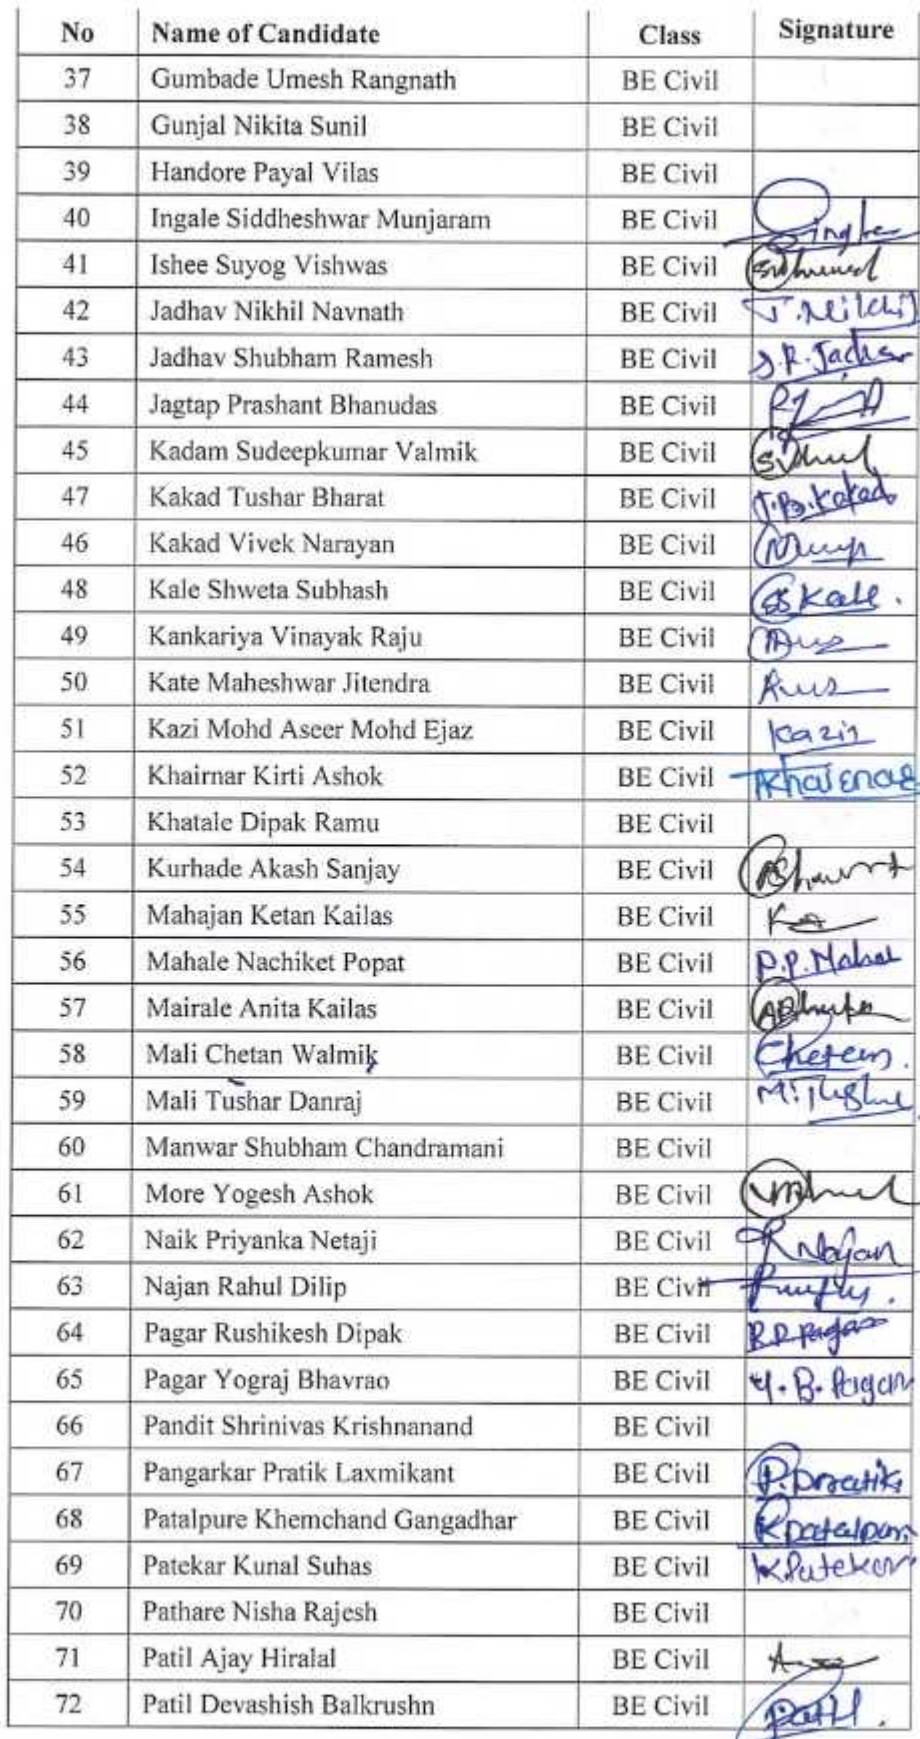 No Name of Candidate Class Signature
37 Gumbade Umesh Rangnath BE Civil
38 Gunjal Nikita Sunil BE Civil
39 Handore Payal Vilas BE Civil
40 Ingale Siddheshwar Munjaram BE Civil
41 Ishee Suyog Vishwas BE Civil
42 Jadhav Nikhil Navnath BE Civil J.Nikhil
43 Jadhav Shubham Ramesh BE Civil S.R.Jadhav
44 Jagtap Prashant Bhanudas BE Civil
45 Kadam Sudeepkumar Valmik BE Civil
47 Kakad Tushar Bharat BE Civil T.B.Kakad
46 Kakad Vivek Narayan BE Civil
48 Kale Shweta Subhash BE Civil SSKale.
49 Kankariya Vinayak Raju BE Civil
50 Kate Maheshwar Jitendra BE Civil
51 Kazi Mohd Aseer Mohd Ejaz BE Civil
52 Khairnar Kirti Ashok BE Civil
53 Khatale Dipak Ramu BE Civil
54 Kurhade Akash Sanjay BE Civil
55 Mahajan Ketan Kailas BE Civil
56 Mahale Nachiket Popat BE Civil
57 Mairale Anita Kailas BE Civil
58 Mali Chetan Walmik BE Civil
59 Mali Tushar Danraj BE Civil
60 Manwar Shubham Chandramani BE Civil
61 More Yogesh Ashok BE Civil
62 Naik Priyanka Netaji BE Civil
63 Najan Rahul Dilip BE Civil
64 Pagar Rushikesh Dipak BE Civil R.D.Pagar
65 Pagar Yograj Bhavrao BE Civil Y.B.Pagar
66 Pandit Shrinivas Krishnanand BE Civil
67 Pangarkar Pratik Laxmikant BE Civil P.Pratik
68 Patalpure Khemchand Gangadhar BE Civil
69 Patekar Kunal Suhas BE Civil KPatekar
70 Pathare Nisha Rajesh BE Civil
71 Patil Ajay Hiralal BE Civil
72 Patil Devashish Balkrushn BE Civil